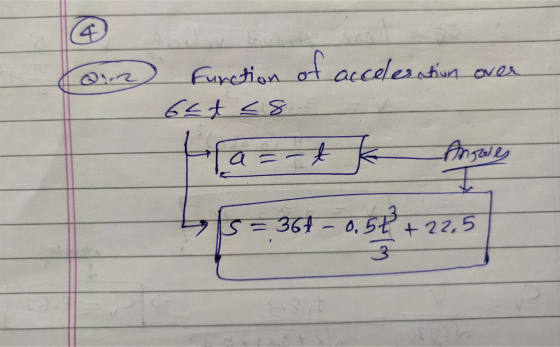 ④
Q:-2 Function of acceleration over
6 ≤ t ≤ 8
a = -t
Answer
S = 36t - 0.5t³/3 + 22.5